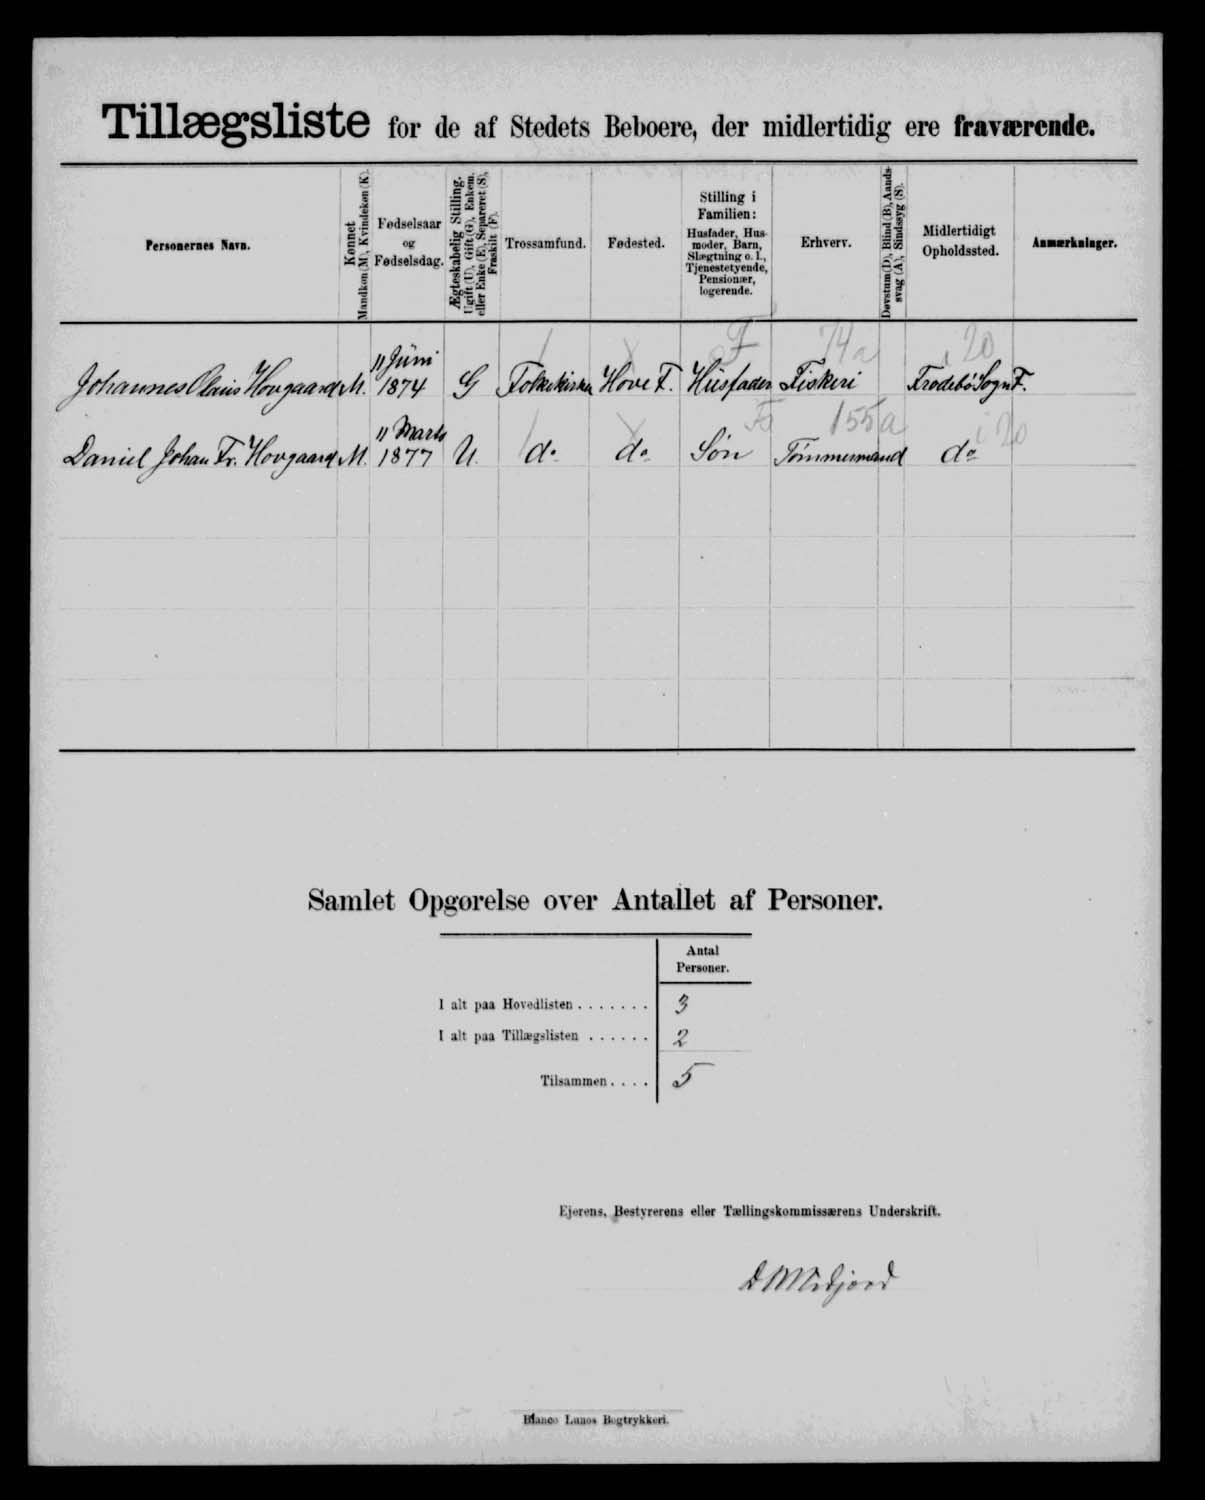 Tillægsliste for de af Stedets Beboere, der midlertidig ere fraværende.
Personernes Navn.
Kønnet
Mandkøn (M), Kvindekøn (K).
Fødselsaar
og
Fødselsdag.
Ægteskabelig Stilling.
Ugift (U), Gift (G), Enkem.
eller Enke (E), Separeret (S),
Fraskilt (F).
Trossamfund.
Fødested.
Stilling i
Familien:
Husfader, Hus-
moder, Barn,
Slægtning o. l.,
Tjenestetyende,
Pensionær,
logerende.
Erhverv.
Døvstum (D), Blind (B), Aands-
svag (A), Sindssyg (S).
Midlertidigt
Opholdssted.
Anmærkninger.
F 74a i 20
11 Juni
Johannes Olaus Hovgaard M. 1874 G Folkekirken Hove F. Husfader Fiskeri Frodebø Sogn F.
Fo 155a i 20
11 Marts
Daniel Johan Fr. Hovgaard M. 1877 U. do do Søn Tømmermand do
Samlet Opgørelse over Antallet af Personer.
Antal
Personer.
I alt paa Hovedlisten . . . . . . . 3
I alt paa Tillægslisten . . . . . . 2
Tilsammen . . . . 5
Ejerens, Bestyrerens eller Tællingskommissærens Underskrift.
D M Midjord
Bianco Lunos Bogtrykkeri.